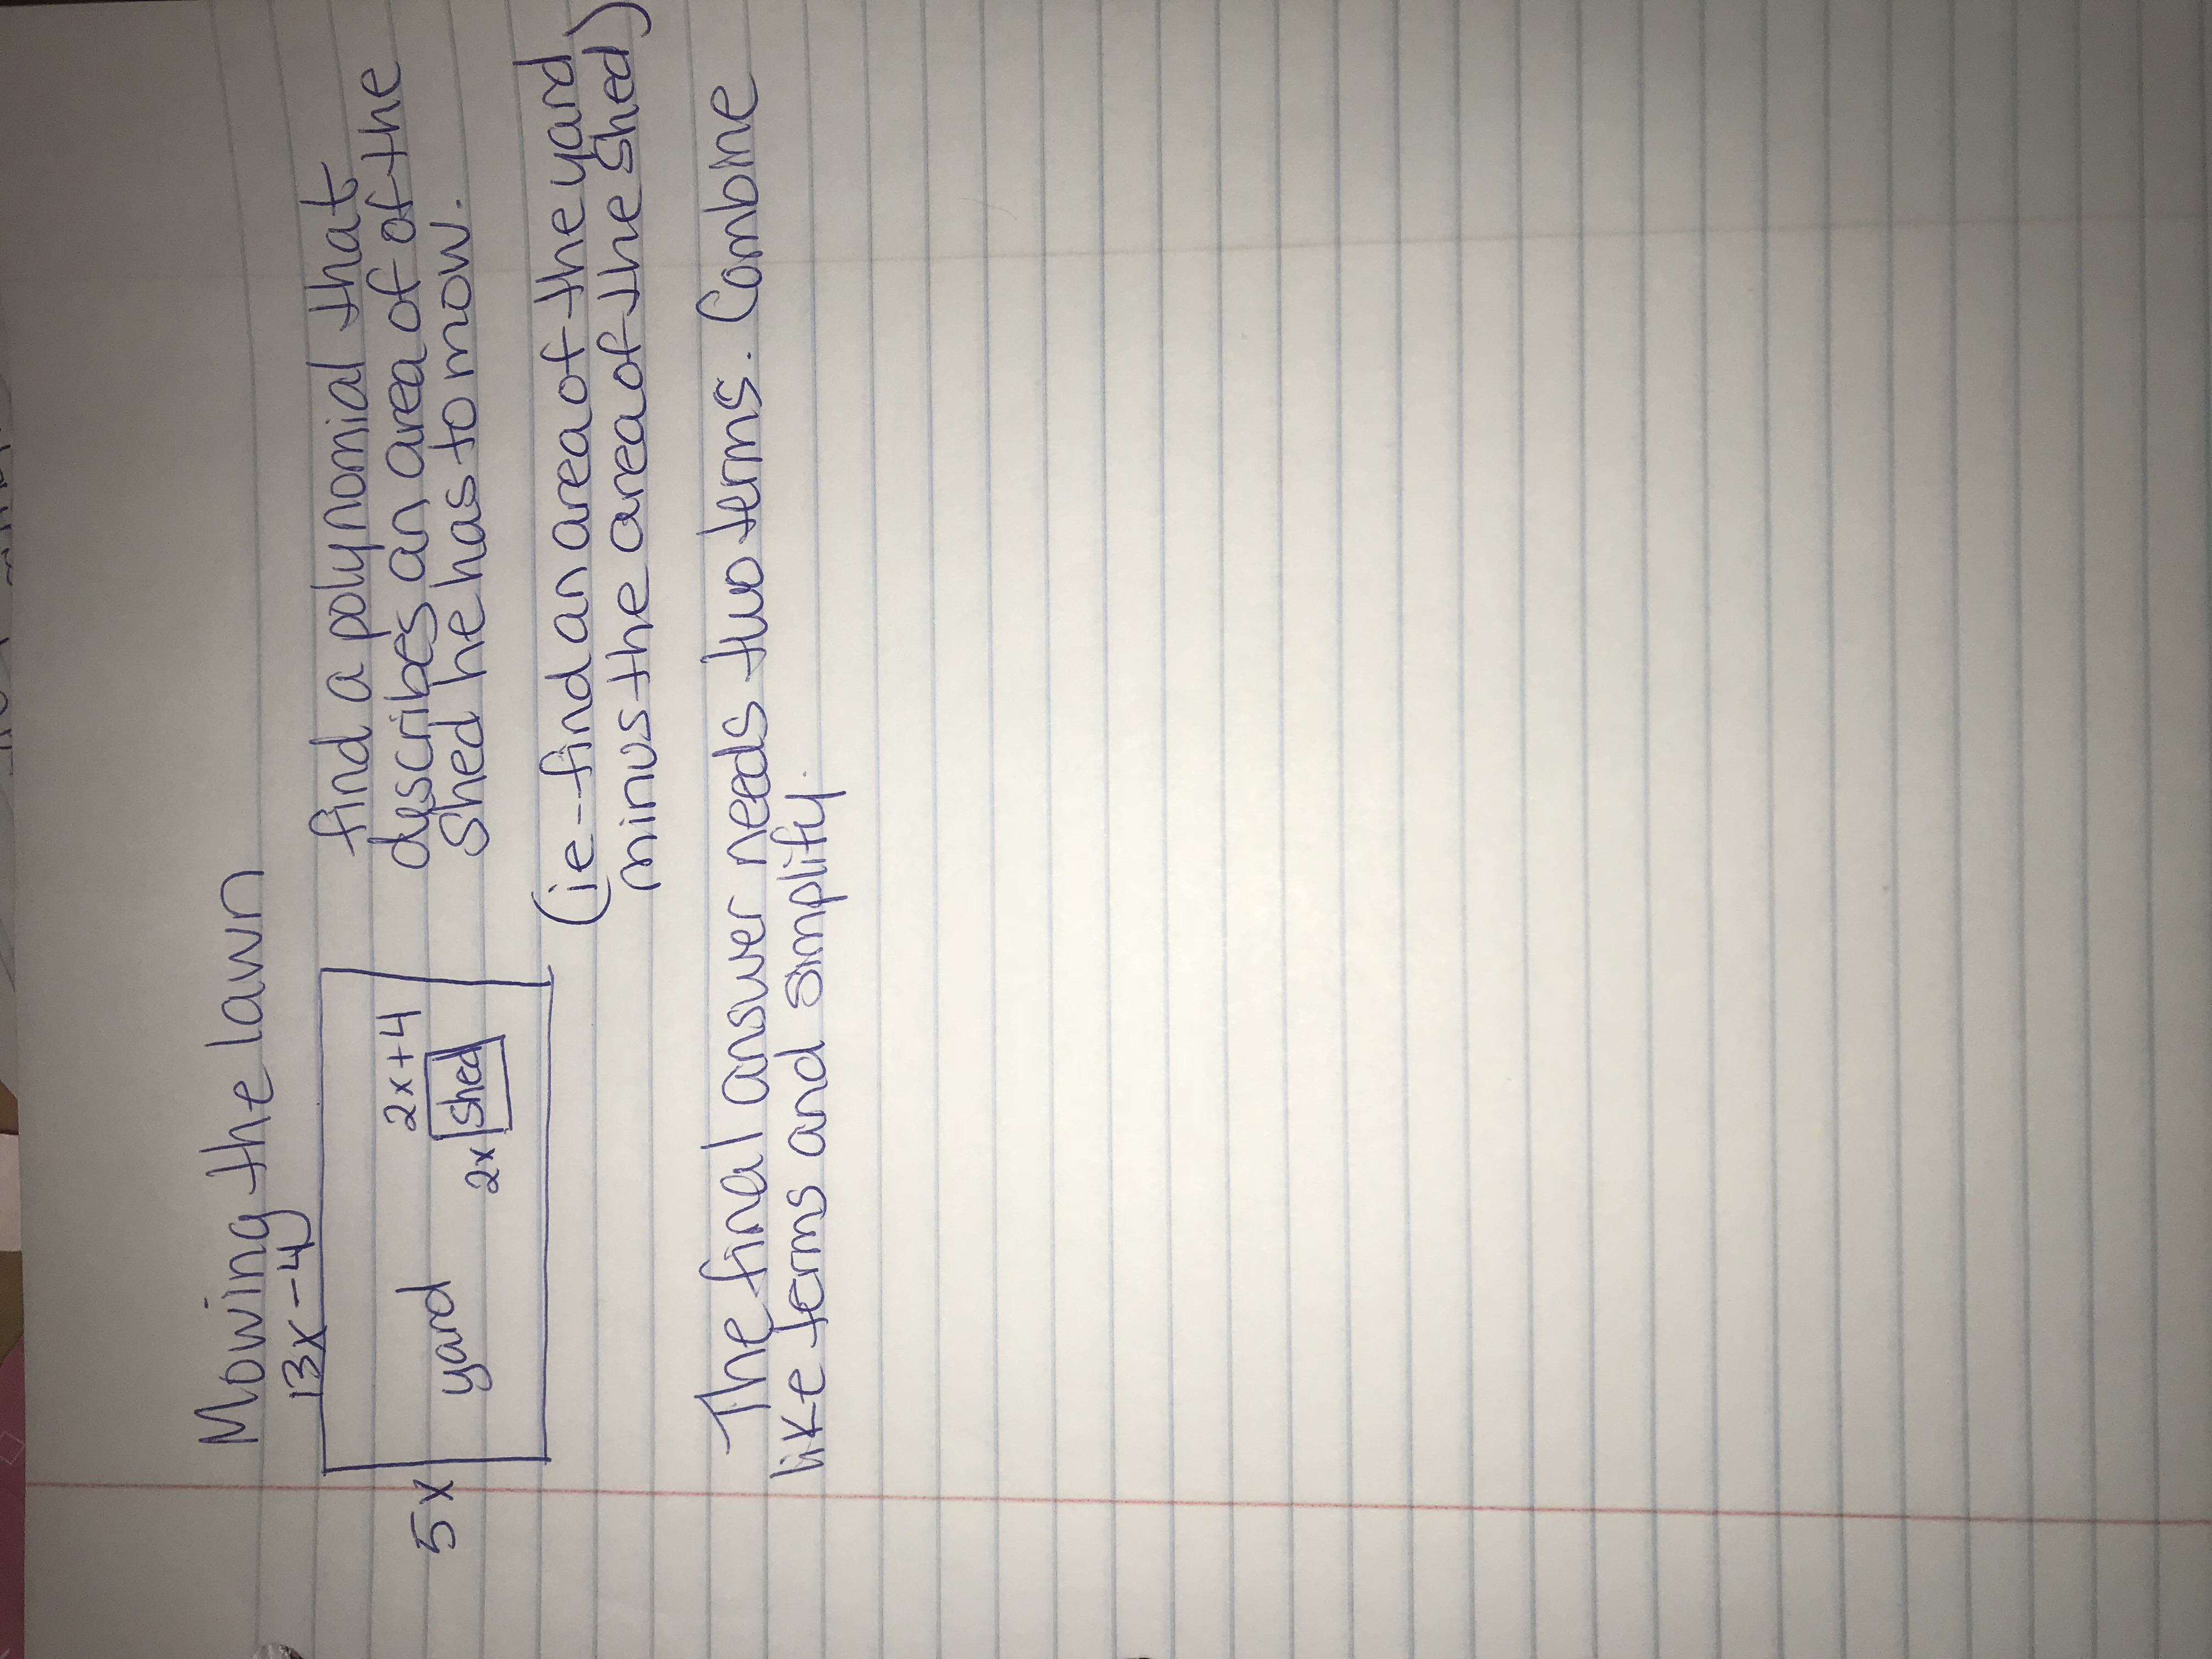 Mowing the lawn
13x-4
find a polynomial that
2x+4
describes an area of of the
5x
yard
shed he has to mow.
2x
shed
(ie-find an area of the yard
minus the area of the shed)
The final answer needs two terms. Combine
like terms and simplify.